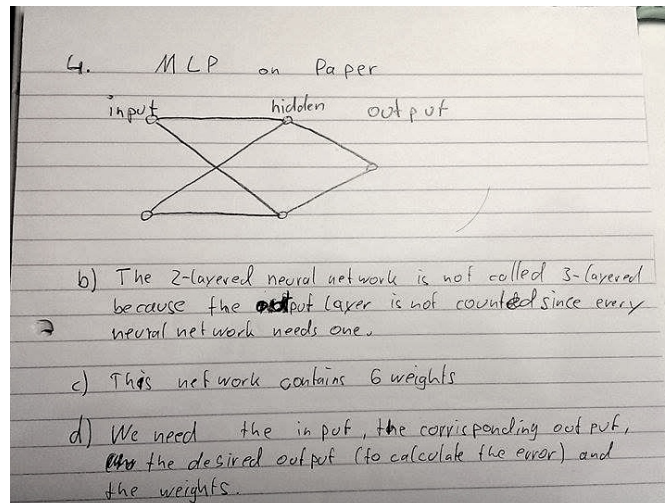 4. MLP on Paper
input hidden output
b) The 2-layered neural network is not called 3-layered
because the output layer is not counted since every
neural network needs one.
c) This network contains 6 weights
d) We need the input, the corrisponding output,
the desired output (to calculate the error) and
the weights.